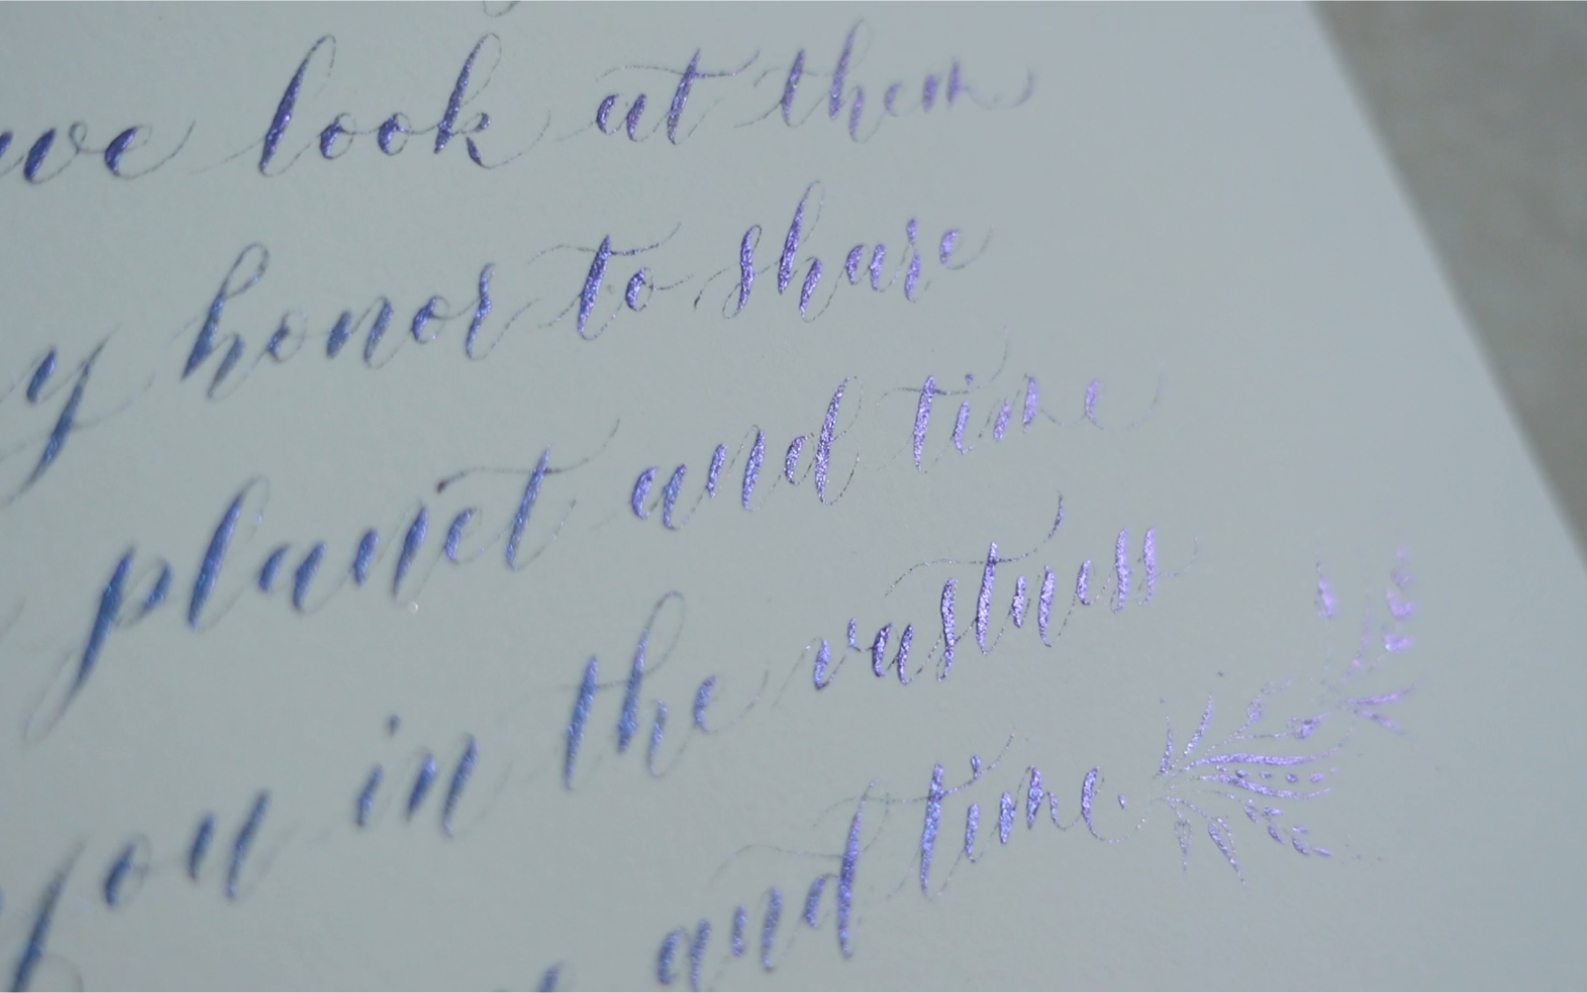 we look at them
honor to share
planet and time
you in the vastness
and time.